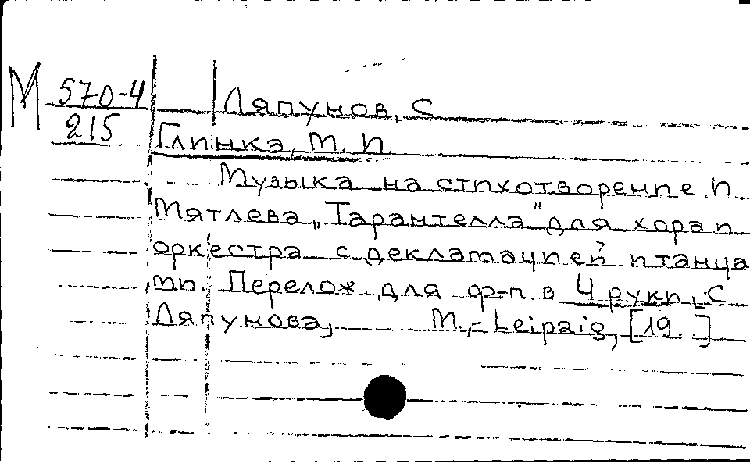 М 570-4
215
Ляпунов, С
Глинка, М. И
Музыка на стихотворение И.
Мятлева "Тарантелла" для хора и
оркестра с декламацией и танца
ми. Переложение для ф-п. в 4 руки, С
Ляпунова, М.- Leipzig, [19 ]